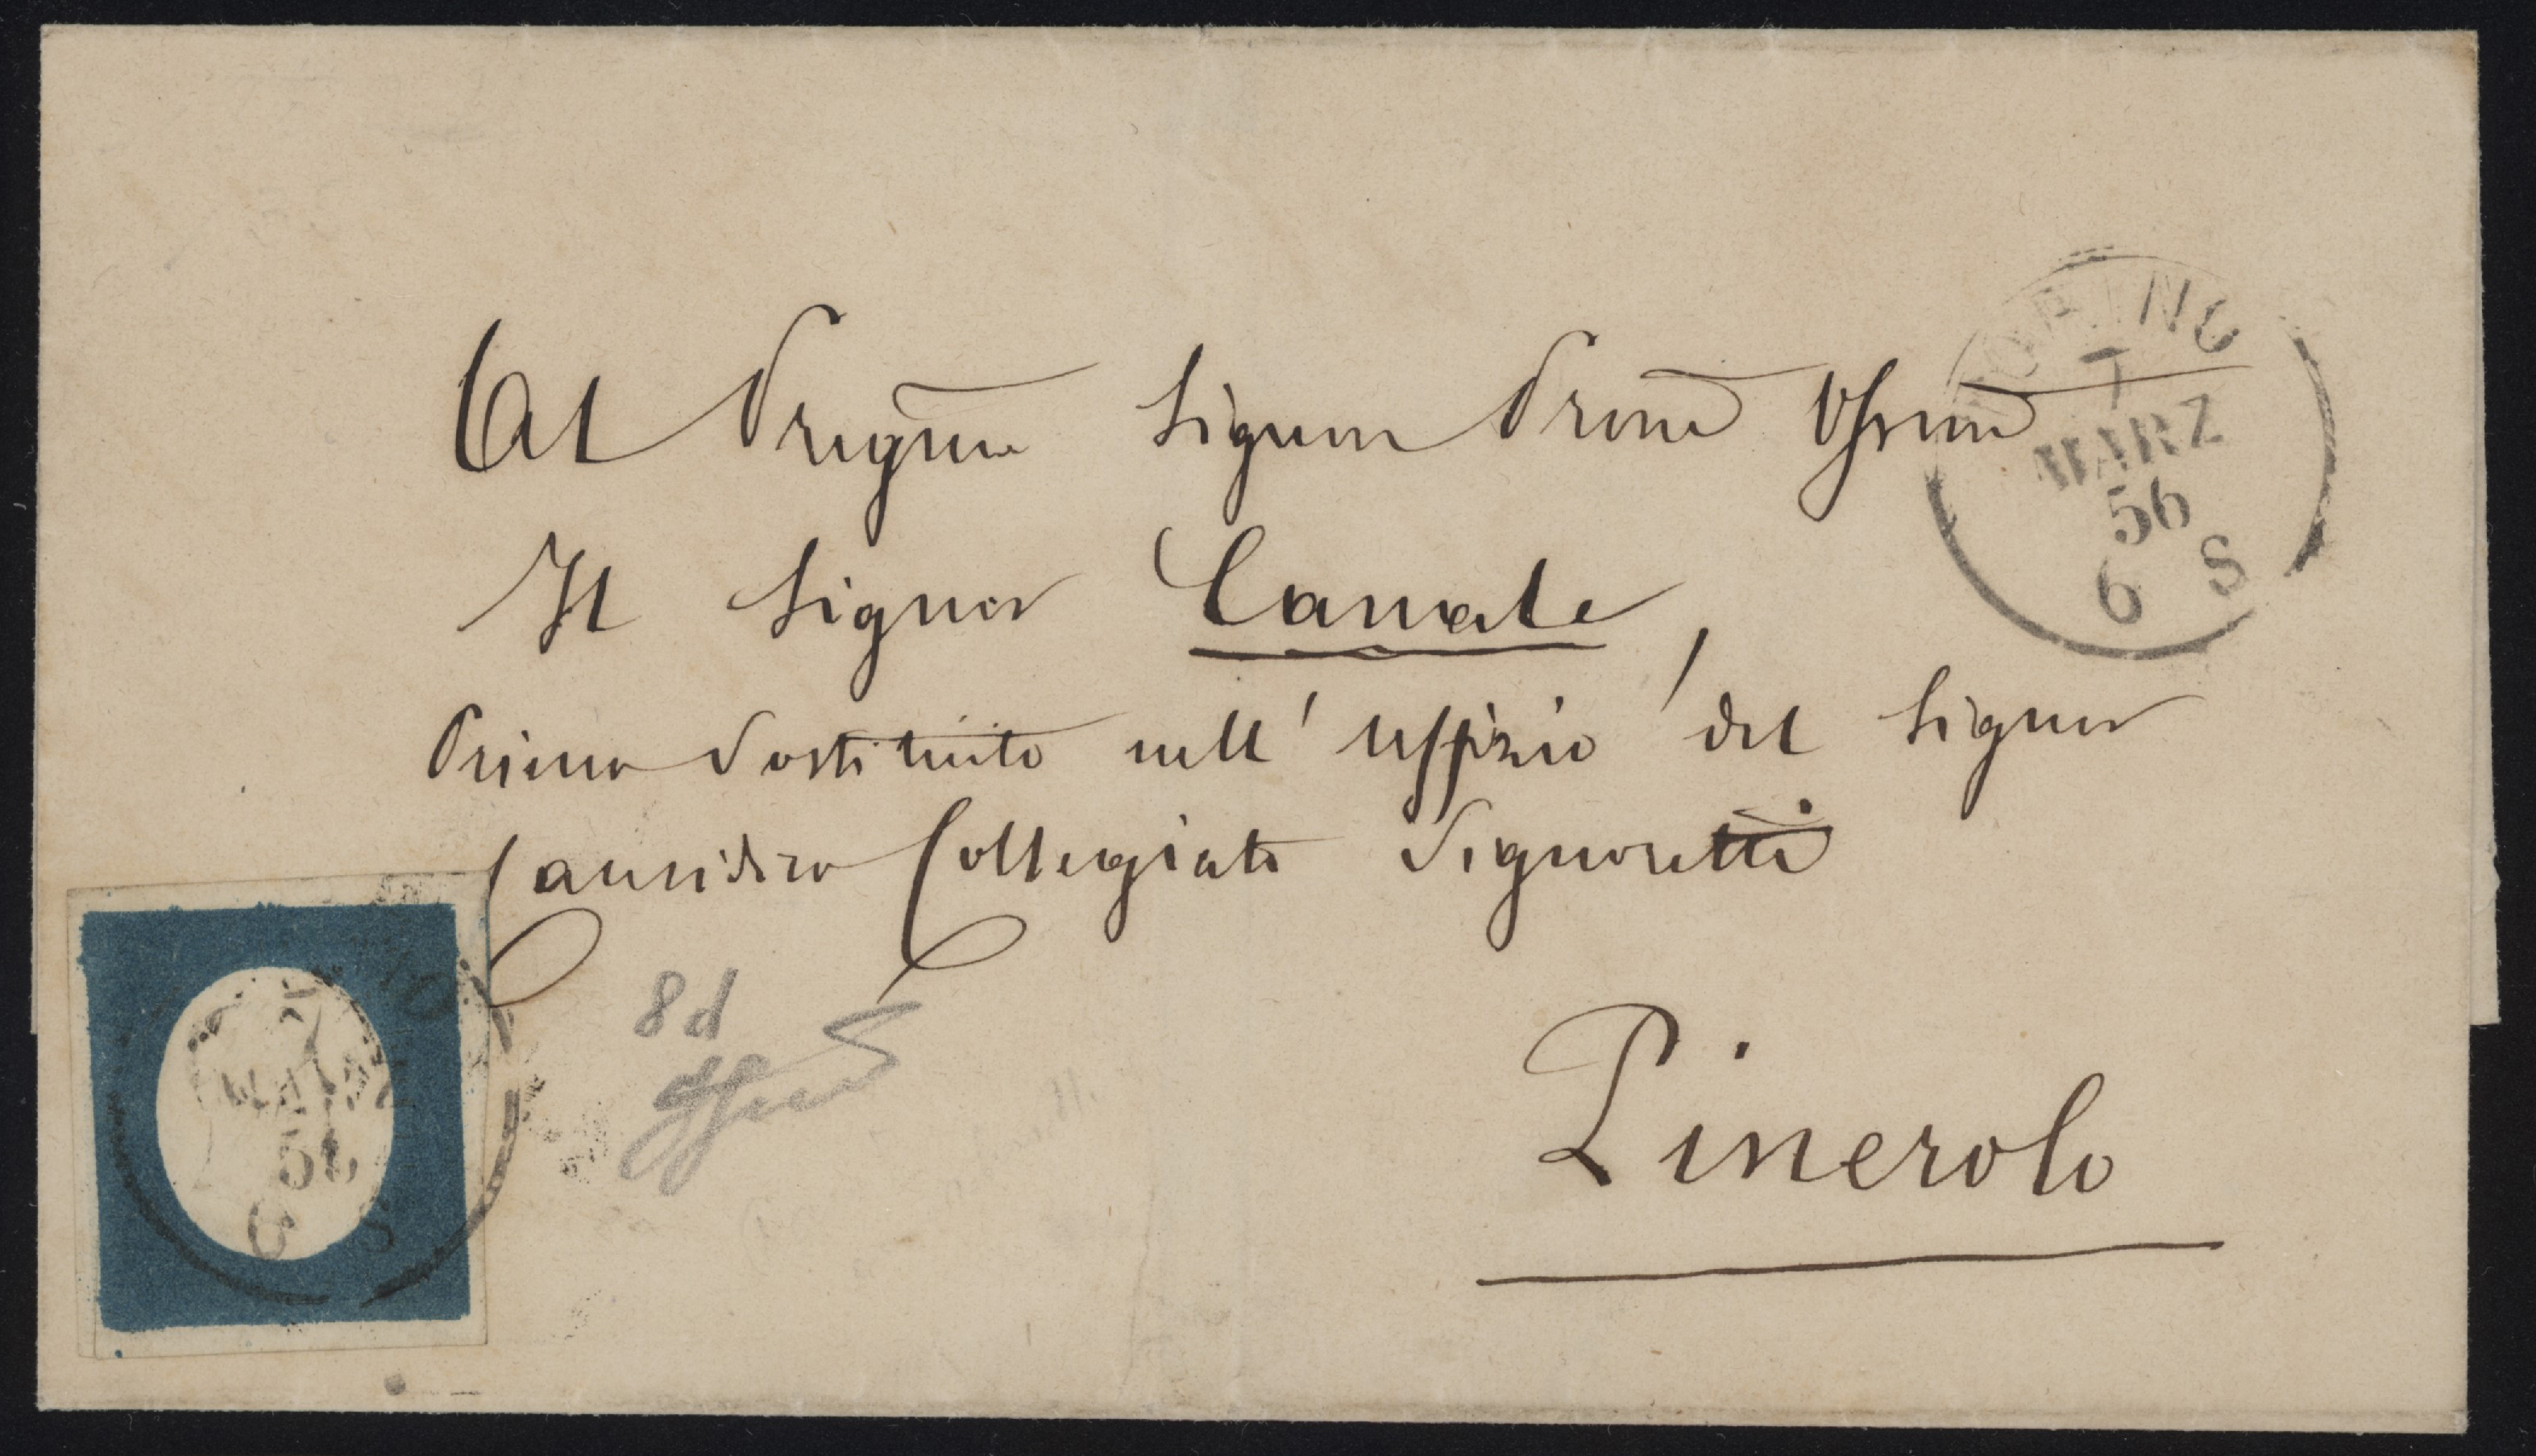 Al Pregmo Signor Prone
Il Signor Cannale,
Primo Sostituito nell' uffizio del Signor
Causidico Collegiato Signoretti
Pinerolo
TORINO
7
MARZ
56
6 S
8d
56
S